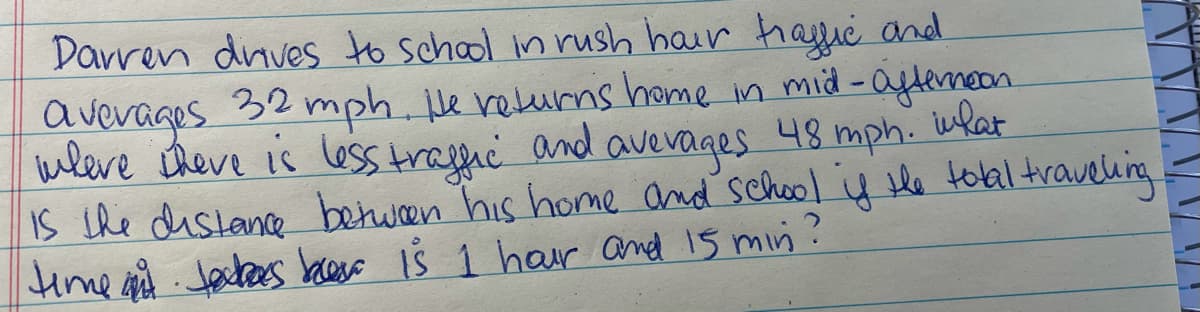 Darren drives to school in rush hour traffic and
averages 32 mph. He returns home in mid-afternoon
where there is less traffic and averages 48 mph. what
is the distance between his home and school if the total traveling
time is 1 hour and 15 min?